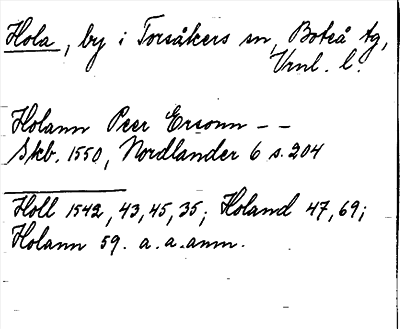 Hola, by i Torsåkers sn, Boteå tg,
Vnl. l.
Holann Peer Ersonn - -
Skb. 1550, Nordlander 6 s. 204
Holl 1542, 43, 45, 35; Holand 47, 69;
Holann 59. a. a. anm.